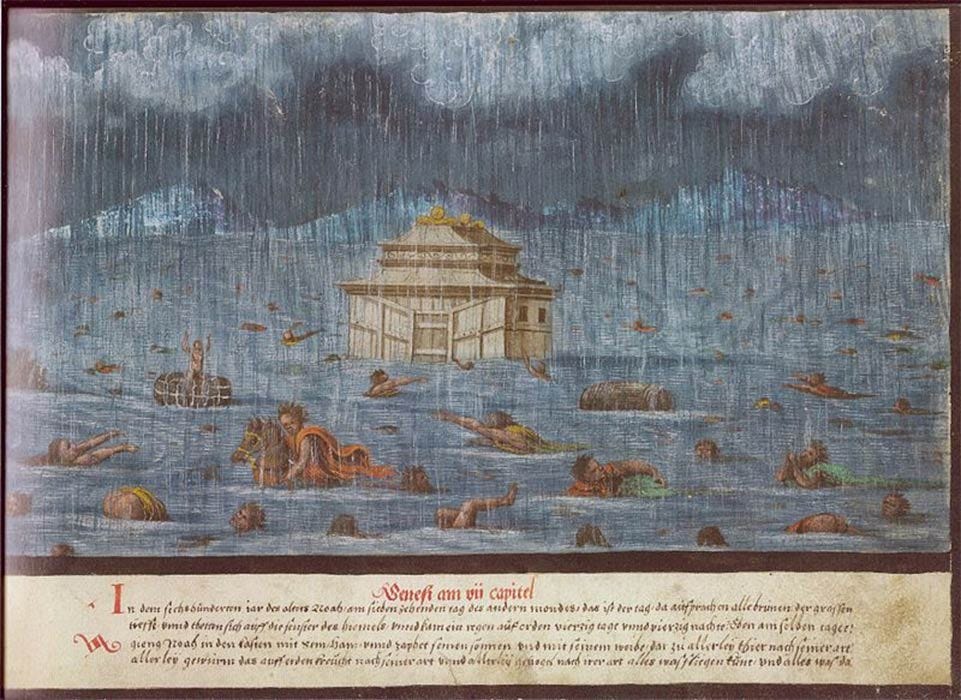 Genesi am vij capitel
In dem sechshünderten iar des alters Noah, am sieben zehenden tag des andern mondes, das ist der tag, da auffprachen alle brünen der grossen
tieffe, vnnd theten sich auff die fenster des himels, vnnd kam ein regen auff erden vierzig tage vnnd vierzig nachte, Eben am selben tage
gieng Noah in den kasten mit Sem, Ham, vnnd Japhet seinen sönnen, vnd mit seinem weibe, dar zu allerley thier nach seiner art
allerley gewürm das auff erden kreücht nach seiner art vnnd allerley gevogel nach irer art alles was fliegen kunt, vnd alles was da